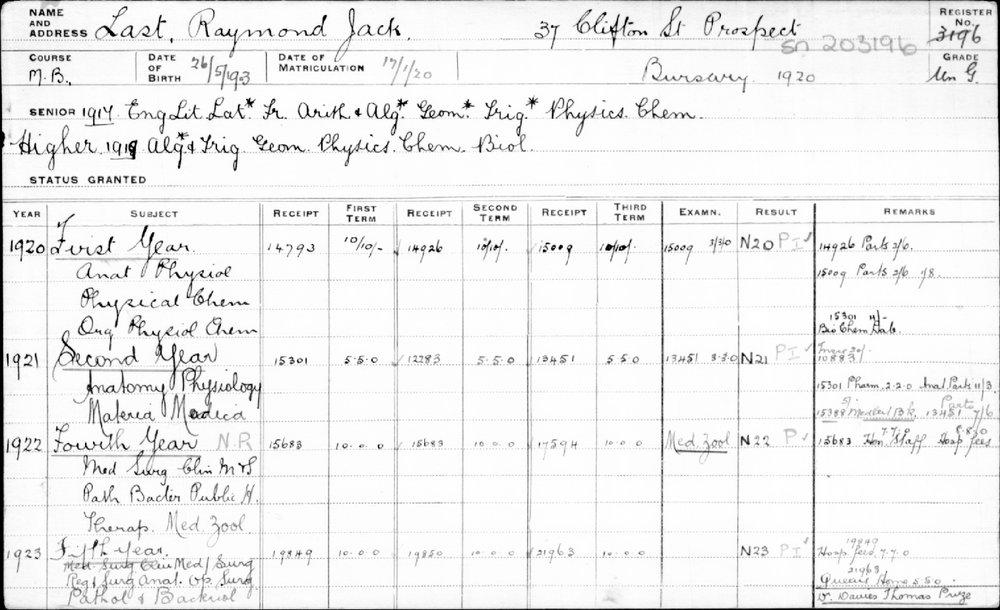 NAME AND ADDRESS Last, Raymond Jack. 37 Clifton St Prospect REGISTER No. 3196
sn 203196
COURSE M.B., DATE OF BIRTH 26/5/1903 DATE OF MATRICULATION 17/1/20 Bursary 1920 GRADE Un G.
SENIOR 1917 Eng Lit Lat* Fr. Arith & Alg* Geom* Trig* Physics. Chem.
Higher 1919 Alg* & Trig Geom Physics. Chem. Biol.
STATUS GRANTED
YEAR SUBJECT RECEIPT FIRST TERM RECEIPT SECOND TERM RECEIPT THIRD TERM EXAMN. RESULT REMARKS
1920 First Year. 14793 10/10/- 14926 10/10/- 15009 10/10/- 15009 3/3/0 N20 PI 14926 Parts 2/6.
Anat Physiol 15009 Parts 2/6
Physical Chem
Org Physiol Chem 15301 11/- Bio Chem Lab.
1921 Second Year 15301 5.5.0 12283 5.5.0 13451 5.5.0 13451 3.3.0 N21 PI 10883
Anatomy Physiology 15301 Pharm. 2.2.0 Anat Parts 11/3
Materia Medica 15388 13451 Parts 7/6
1922 Fourth Year N.R 15683 10.0.0 15683 10.0.0 17594 10.0.0 Med Zool N22 P 15683 Hon. Staff 7.7.0 Hosp fees 8.8.0
Med Surg Clin M&S
Path Bacter Public H.
Therap. Med. Zool
1923 Fifth Year. 19849 10.0.0 19850 10.0.0 21963 10.0.0 N23 PI 19849 Hosp fees 7.7.0
Med Surg Clin Med/Surg 21963
Reg & Surg Anat. Op. Surg Queens Home 5.5.0
Pathol & Bacteriol Dr. Davies Thomas Prize